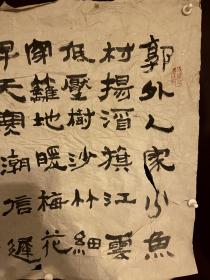 郭外人家小魚
村揚酒旗江雲
低壓樹沙竹細
穿籬地暖梅花
早天寒潮信遲